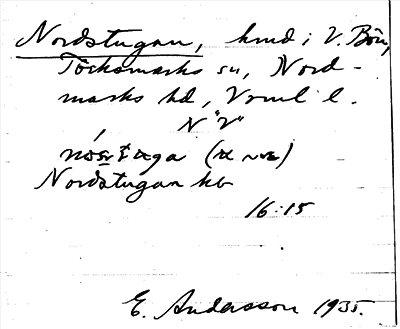 Nordstugan, hmd i V. Bön,
Töcksmarks sn, Nord-
marks hd, Vrml l.
N "V"
Nordstugan kb
16:15
E. Andersson 1935.